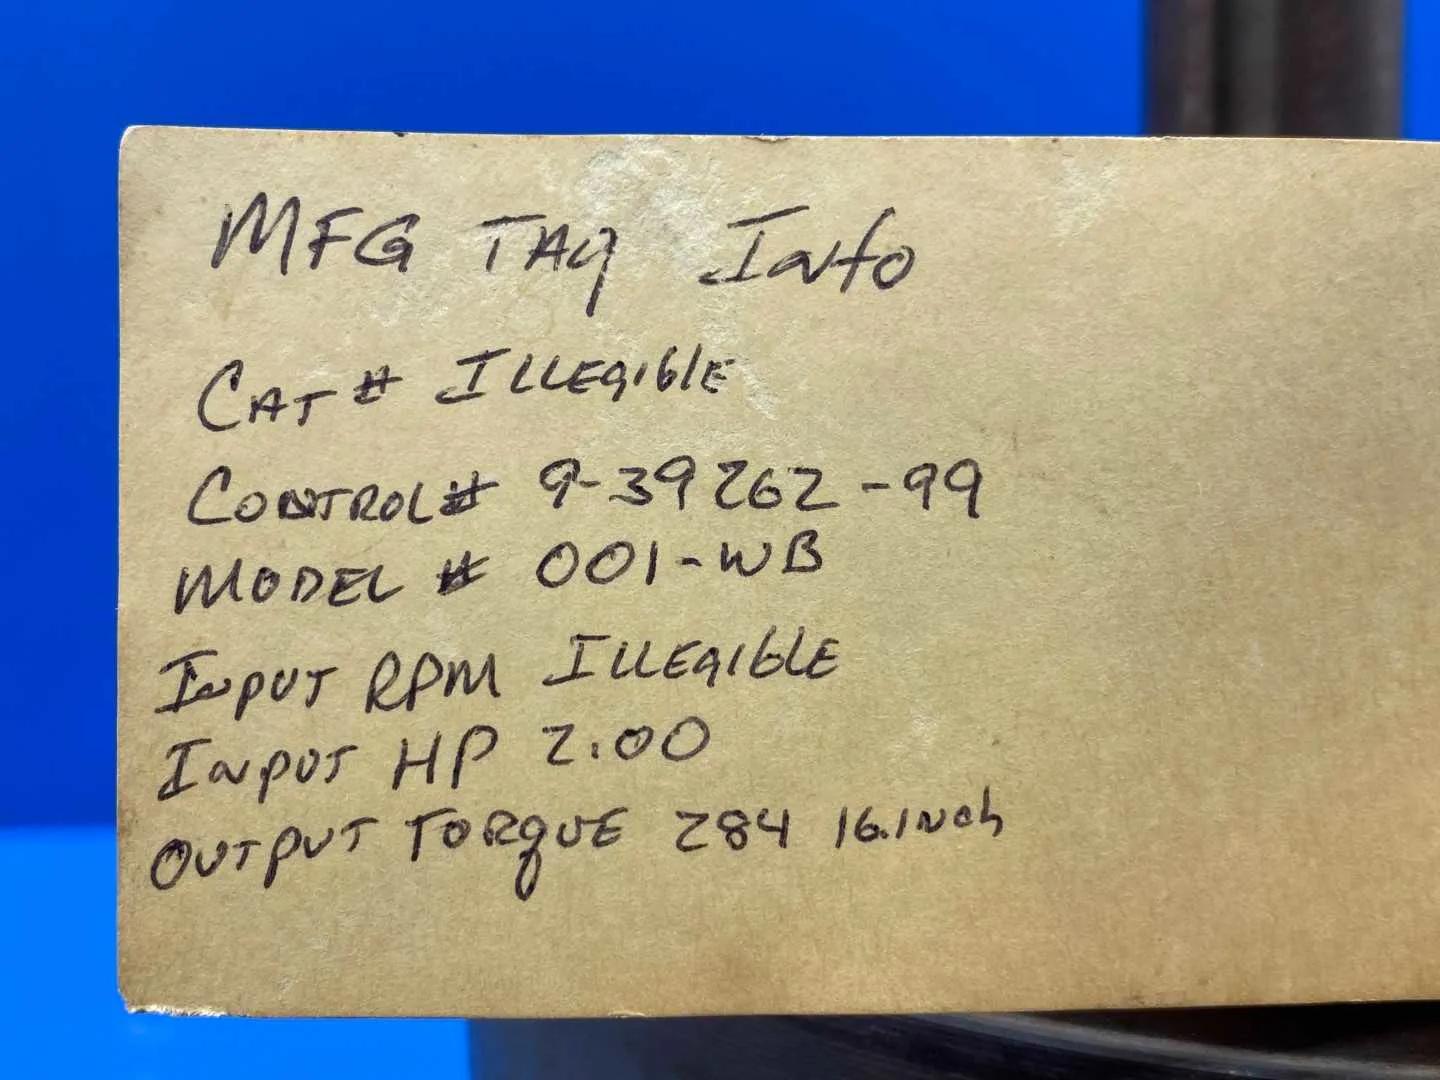 MFG TAg Info
CAT # ILLEgible
CONTROL# 9-39262-99
MODEL # 001-WB
INPUT RPM ILLEgibLE
INPUT HP 2.00
OUTPUT TORqUE 284 lb.INch